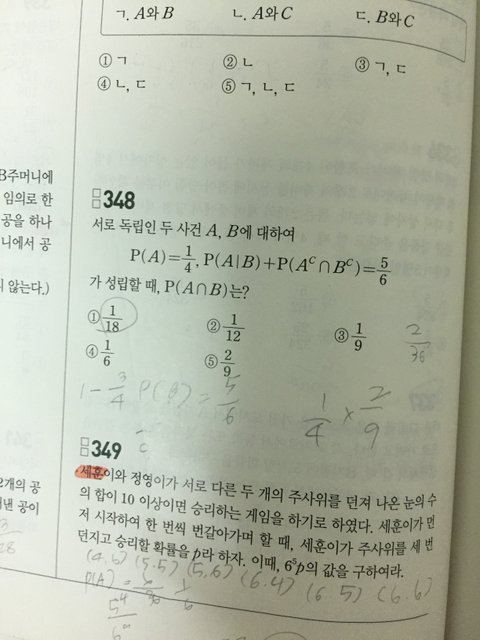 ㄱ. A와 B ㄴ. A와 C ㄷ. B와 C
① ㄱ ② ㄴ ③ ㄱ, ㄷ
④ ㄴ, ㄷ ⑤ ㄱ, ㄴ, ㄷ
B주머니에
임의로 한
공을 하나
니에서 공
않는다.)
348
서로 독립인 두 사건 A, B에 대하여
P(A)=1/4, P(A|B)+P(A^C∩B^C)=5/6
가 성립할 때, P(A∩B)는?
① 1/18 ② 1/12 ③ 1/9 2/36
④ 1/6 ⑤ 2/9
1-3/4 P(B)=5/6
1/4 × 2/9
349
세훈이와 정영이가 서로 다른 두 개의 주사위를 던져 나온 눈의 수
의 합이 10 이상이면 승리하는 게임을 하기로 하였다. 세훈이가 먼
저 시작하여 한 번씩 번갈아가며 할 때, 세훈이가 주사위를 세 번
던지고 승리할 확률을 p라 하자. 이때, 6⁵p의 값을 구하여라.
2개의 공
낸 공이
(4.6) (5.5) (5.6) (6.4) (6.5) (6.6)
P(A)=